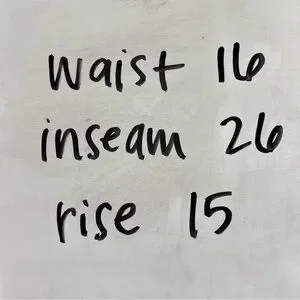 waist 16
inseam 26
rise 15